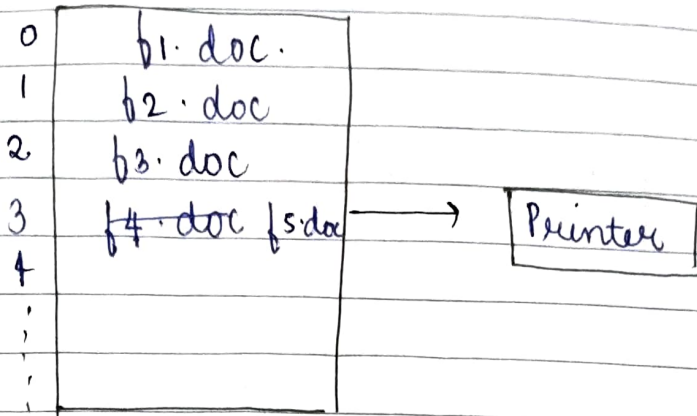 0 f1. doc.
1 f2. doc
2 f3. doc
3 f4. doc f5.doc Printer
4